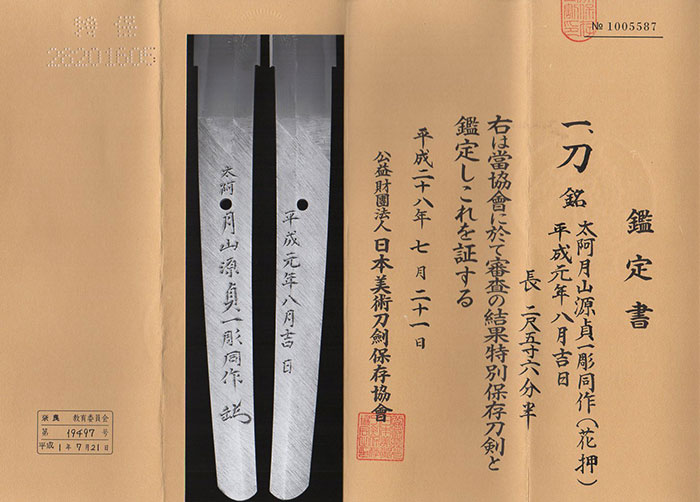 № 1005587
鑑定書
一、刀 銘 太阿月山源貞一彫同作(花押)
平成元年八月吉日
長 二尺五寸六分半
右は當協會に於て審査の結果特別保存刀剣と
鑑定しこれを証する
平成二十八年 七月 二十一日
公益財團法人 日本美術刀劍保存協會
平成元年八月吉日
太阿 月山源貞一彫同作
奈良 教育委員会
第 19497 号
平成 1年 7月21日